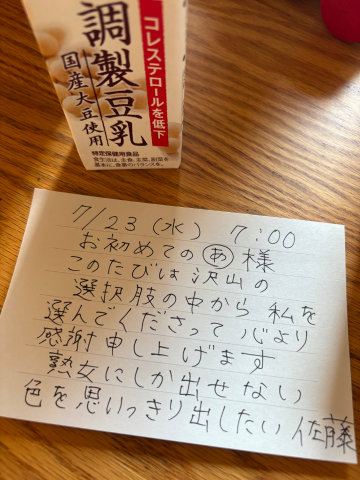 コレステロールを低下
調製豆乳
国産大豆使用
特定保健用食品
食生活は、主食、主菜、副菜を
基本に、食事のバランスを。
7/23(水) 7:00
お初めての あ 様
このたびは沢山の
選択肢の中から 私を
選んでくださって 心より
感謝申し上げます
熟女にしか出せない
色を思いっきり出したい 佐藤